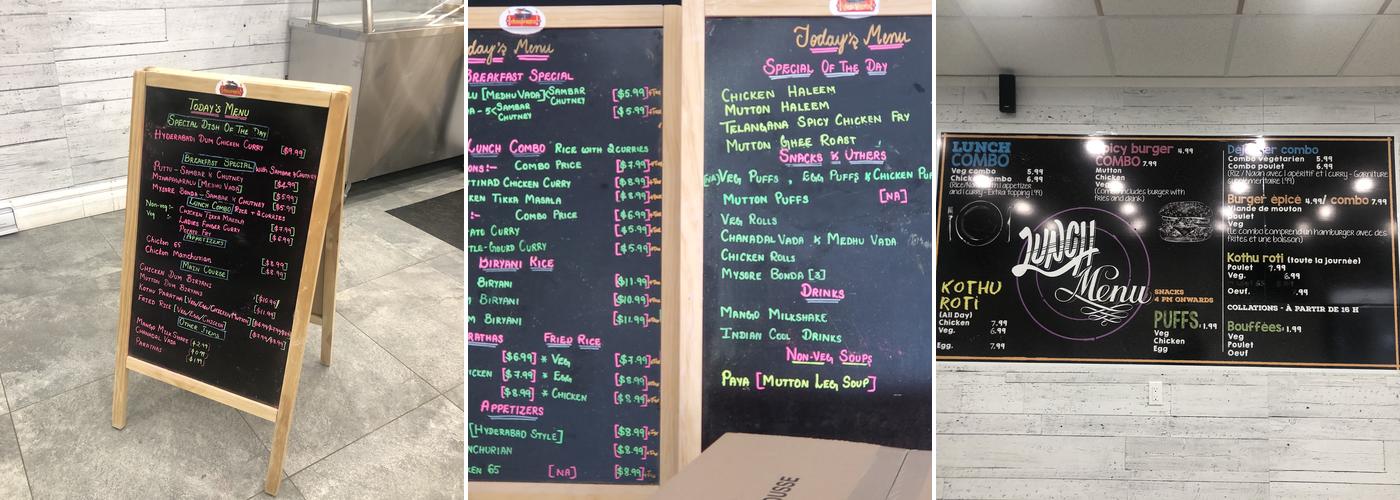 TODAY'S MENU
SPECIAL DISH OF THE DAY
HYDERABADI DUM CHICKEN CURRY [$9.99]
BREAKFAST SPECIAL
PUTTU - SAMBAR & CHUTNEY
MINAPAGARALU [MEDHU VADA] with SAMBAR & CHUTNEY [$4.99]
MYSORE BONDA - SAMBAR & CHUTNEY [$5.99]
LUNCH COMBO RICE + 2 CURRIES
Non-veg:- CHICKEN TIKKA MASALA [$7.99]
Veg :- LADIES FINGER CURRY [$6.99]
POTATO FRY
APPETIZERS
Chicken 65 [$8.99]
Chicken Manchurian [$8.99]
MAIN COURSE
CHICKEN DUM BIRYANI [$10.99]
MUTTON DUM BIRYANI [$11.99]
KOTHU PARATHA [VEG/EGG/CHICKEN/MUTTON]
FRIED RICE [VEG/EGG/CHICKEN]
OTHER ITEMS
MANGO MILK SHAKE
CHANADAL VADA
PARATHAS
day's Menu
BREAKFAST SPECIAL
LU [MEDHU VADA] SAMBAR CHUTNEY [$5.99]+Tax
A - 5 SAMBAR CHUTNEY [$5.99]+Tax
LUNCH COMBO RICE WITH 2 CURRIES
ONS:- COMBO PRICE [$7.99]+Tax
TTINAD CHICKEN CURRY [$8.99]+Tax
KEN TIKKA MASALA [$8.99]+Tax
:- COMBO PRICE [$6.99]+Tax
ATO CURRY [$5.99]+Tax
TLE-GOURD CURRY [$5.99]+Tax
BIRYANI RICE
BIRYANI [$11.99]+Tax
BIRYANI [$10.99]+Tax
M BIRYANI [$11.99]+Tax
RATHAS FRIED RICE
[$6.99] * VEG [$7.99]+Tax
ICKEN [$7.99] * EGG [$8.99]+Tax
[$8.99] * CHICKEN [$8.99]+Tax
APPETIZERS
[HYDERABAD STYLE] [$8.99]+Tax
NCHURIAN [$8.99]+Tax
KEN 65 [NA] [$8.99]+Tax
Today's Menu
SPECIAL OF THE DAY
CHICKEN HALEEM
MUTTON HALEEM
TELANGANA SPICY CHICKEN FRY
MUTTON GHEE ROAST
SNACKS & OTHERS
[NA] VEG PUFFS, EGG PUFFS & CHICKEN PUF
MUTTON PUFFS [NA]
VEG ROLLS
CHANADAL VADA & MEDHU VADA
CHICKEN ROLLS
MYSORE BONDA [3]
DRINKS
MANGO MILKSHAKE
INDIAN COOL DRINKS
NON-VEG SOUPS
PAYA [MUTTON LEG SOUP]
OUSSE
LUNCH
COMBO
Veg combo 5.99
Chicken combo 6.99
(Rice/Naan with 1 appetizer
and 1 curry - Extra topping 1.99)
KOTHU
ROTI
(All Day)
Chicken 7.99
Veg. 6.99
Egg. 7.99
LUNCH
Menu
Spicy burger 4.99
COMBO 7.99
Mutton
Chicken
Veg
(Combo includes burger with
fries and drink)
SNACKS
4 PM ONWARDS
PUFFS 1.99
Veg
Chicken
Egg
Dejeuner combo
Combo vegetarien 5.99
Combo poulet 6.99
(Riz / Naan avec 1 apéritif et 1 curry - Garniture
supplémentaire 1.99)
Burger épicé 4.99/ combo 7.99
Viande de mouton
Poulet
Veg
(Le combo comprend un hamburger avec des
frites et une boisson)
Kothu roti (toute la journée)
Poulet 7.99
Veg. 6.99
Oeuf. .99
COLLATIONS - À PARTIR DE 16 H
Bouffées 1.99
Veg
Poulet
Oeuf